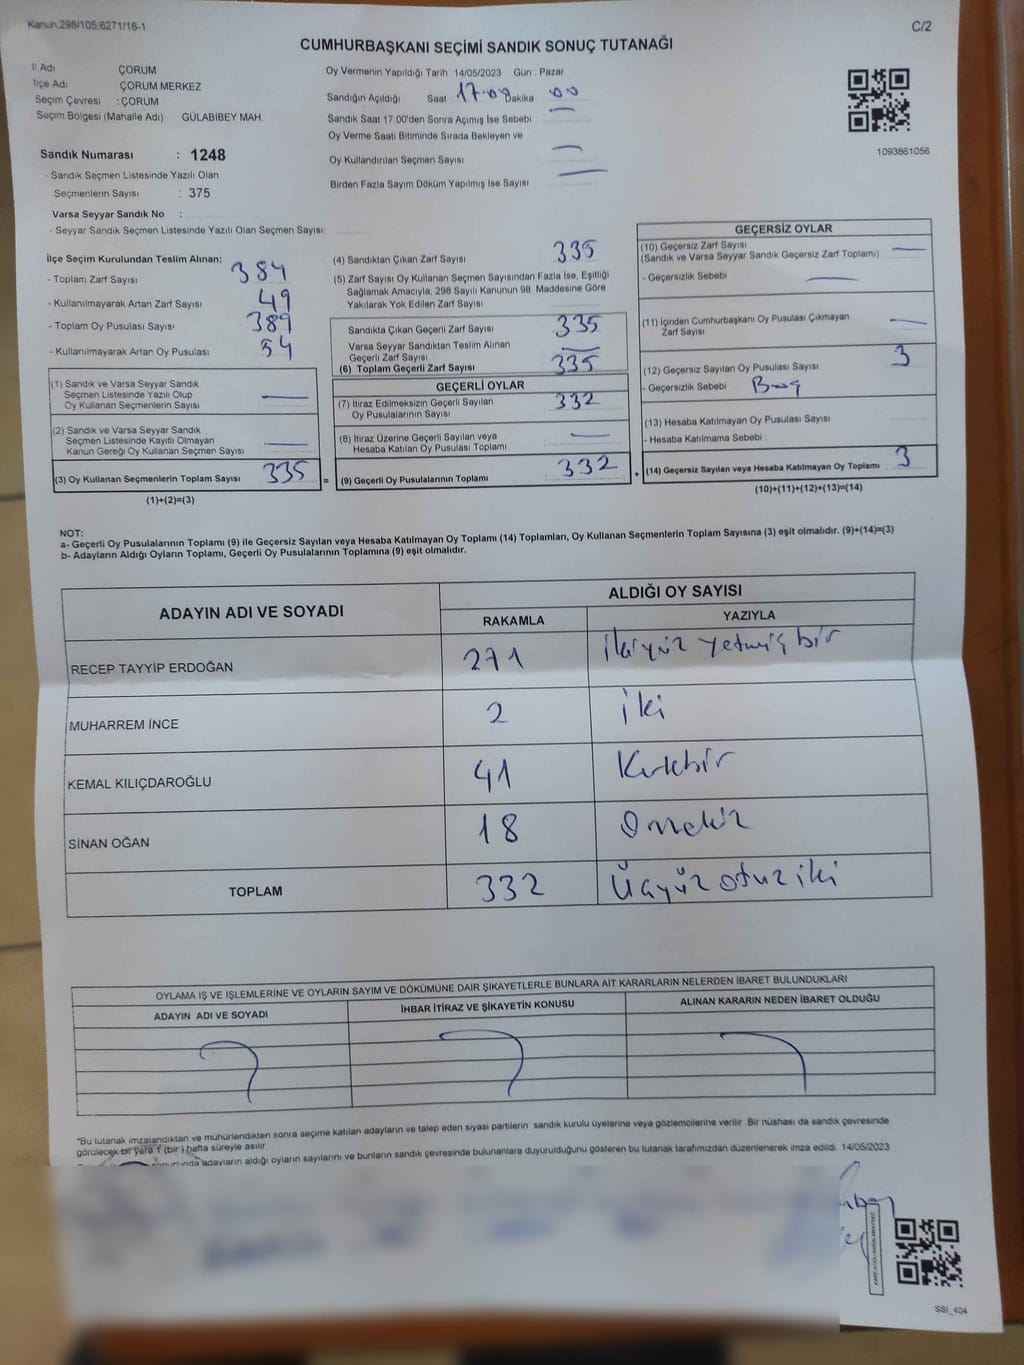 Kanun.298/105;6271/18-1
C/2
CUMHURBAŞKANI SEÇİMİ SANDIK SONUÇ TUTANAĞI
İl Adı ÇORUM
İlçe Adı ÇORUM MERKEZ
Seçim Çevresi : ÇORUM
Seçim Bölgesi (Mahalle Adı) GÜLABİBEY MAH.
Sandık Numarası : 1248
- Sandık Seçmen Listesinde Yazılı Olan
Seçmenlerin Sayısı : 375
Varsa Seyyar Sandık No :
- Seyyar Sandık Seçmen Listesinde Yazılı Olan Seçmen Sayısı:
Oy Vermenin Yapıldığı Tarih 14/05/2023 Gün : Pazar
Sandığın Açıldığı Saat Dakika 00
Sandık Saat 17:00'den Sonra Açımış İse Sebebi
Oy Verme Saati Bitiminde Sırada Bekleyen ve
Oy Kullandırılan Seçmen Sayısı
Birden Fazla Sayım Döküm Yapılmış İse Sayısı
1093861056
İlçe Seçim Kurulundan Teslim Alınan:
- Toplam Zarf Sayısı 384
- Kullanılmayarak Artan Zarf Sayısı 49
- Toplam Oy Pusulası Sayısı 389
- Kullanılmayarak Artan Oy Pusulası 54
(1) Sandık ve Varsa Seyyar Sandık
Seçmen Listesinde Yazılı Olup
Oy Kullanan Seçmenlerin Sayısı —
(2) Sandık ve Varsa Seyyar Sandık
Seçmen Listesinde Kayıtlı Olmayan
Kanun Gereği Oy Kullanan Seçmen Sayısı —
(3) Oy Kullanan Seçmenlerin Toplam Sayısı 335 =
(1)+(2)=(3)
(4) Sandıktan Çıkan Zarf Sayısı 335
(5) Zarf Sayısı Oy Kullanan Seçmen Sayısından Fazla İse, Eşitliği
Sağlamak Amacıyla, 298 Sayılı Kanunun 98. Maddesine Göre
Yakılarak Yok Edilen Zarf Sayısı
Sandıkta Çıkan Geçerli Zarf Sayısı 335
Varsa Seyyar Sandıktan Teslim Alınan
Geçerli Zarf Sayısı —
(6) Toplam Geçerli Zarf Sayısı 335
GEÇERLİ OYLAR
(7) İtiraz Edilmeksizin Geçerli Sayılan
Oy Pusulalarının Sayısı 332
(8) İtiraz Üzerine Geçerli Sayılan veya
Hesaba Katılan Oy Pusulası Toplamı —
(9) Geçerli Oy Pusulalarının Toplamı 332 +
GEÇERSİZ OYLAR
(10) Geçersiz Zarf Sayısı —
(Sandık ve Varsa Seyyar Sandık Geçersiz Zarf Toplamı)
- Geçersizlik Sebebi —
(11) İçinden Cumhurbaşkanı Oy Pusulası Çıkmayan
Zarf Sayısı —
(12) Geçersiz Sayılan Oy Pusulası Sayısı 3
- Geçersizlik Sebebi
(13) Hesaba Katılmayan Oy Pusulası Sayısı
- Hesaba Katılmama Sebebi :
(14) Geçersiz Sayılan veya Hesaba Katılmayan Oy Toplamı 3
(10)+(11)+(12)+(13)=(14)
NOT:
a- Geçerli Oy Pusulalarının Toplamı (9) ile Geçersiz Sayılan veya Hesaba Katılmayan Oy Toplamı (14) Toplamları, Oy Kullanan Seçmenlerin Toplam Sayısına (3) eşit olmalıdır. (9)+(14)=(3)
b- Adayların Aldığı Oyların Toplamı, Geçerli Oy Pusulalarının Toplamına (9) eşit olmalıdır.
ADAYIN ADI VE SOYADI ALDIĞI OY SAYISI
RAKAMLA YAZIYLA
RECEP TAYYİP ERDOĞAN 271 ikiyüz yetmiş bir
MUHARREM İNCE 2 iki
KEMAL KILIÇDAROĞLU 41 Kırkbir
SİNAN OĞAN 18 Onsekiz
TOPLAM 332 Üçyüz otuz iki
OYLAMA İŞ VE İŞLEMLERİNE VE OYLARIN SAYIM VE DÖKÜMÜNE DAİR ŞİKAYETLERLE BUNLARA AİT KARARLARIN NELERDEN İBARET BULUNDUKLARI
ADAYIN ADI VE SOYADI İHBAR İTİRAZ VE ŞİKAYETİN KONUSU ALINAN KARARIN NEDEN İBARET OLDUĞU
*Bu tutanak imzalandıktan ve mühürlendikten sonra seçime katılan adayların ve talep eden siyasi partilerin sandık kurulu üyelerine veya gözlemcilerine verilir. Bir nüshası da sandık çevresinde
görülecek bir yere 1 (bir) hafta süreyle asılır.
adayların aldığı oyların sayılarını ve bunların sandık çevresinde bulunanlara duyurulduğunu gösteren bu tutanak tarafımızdan düzenlenerek imza edildi. 14/05/2023
SSI_404